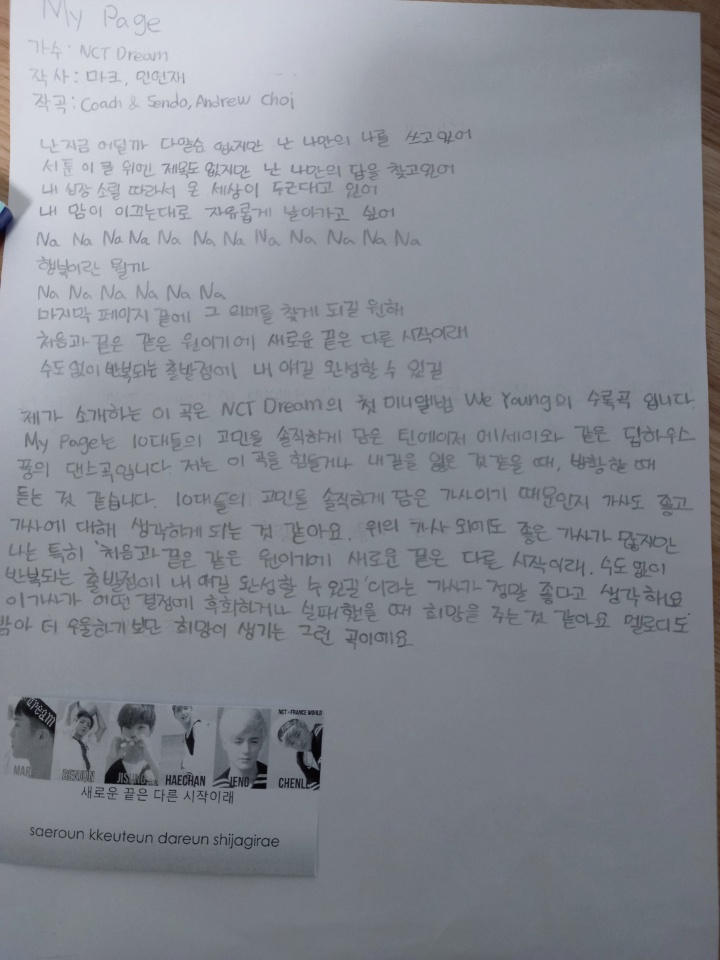 My Page
가수: NCT Dream
작사: 마크, 민연재
작곡: Coach & Sendo, Andrew Choi
난 지금 어딜까 다 알순 없지만 난 나만의 나를 쓰고 있어
서툰 이 글 위엔 제목도 없지만 난 나만의 답을 찾고 있어
내 심장 소릴 따라서 온 세상이 두근대고 있어
내 맘이 이끄는대로 자유롭게 날아가고 싶어
Na Na Na Na Na Na Na Na Na Na Na Na
행복이란 뭘까
Na Na Na Na Na Na
마지막 페이지 끝에 그 의미를 찾게 되길 원해
처음과 끝은 같은 원이기에 새로운 끝은 다른 시작이래
수도 없이 반복되는 출발점에 내 얘길 완성할 수 있길
제가 소개하는 이 곡은 NCT Dream의 첫 미니앨범 We Young의 수록곡 입니다.
My Page는 10대들의 고민을 솔직하게 담은 틴에이저 에세이와 같은 딥하우스
풍의 댄스곡입니다. 저는 이 곡을 힘들거나 내 길을 잃은 것 같을 때, 방황할 때
듣는 것 같습니다. 10대들의 고민을 솔직하게 담은 가사이기 때문인지 가사도 좋고
가사에 대해 생각하게 되는 것 같아요. 위의 가사 외에도 좋은 가사가 많지만
나는 특히 '처음과 끝은 같은 원이기에 새로운 끝은 다른 시작이래. 수도 없이
반복되는 출발점에 내 얘길 완성할 수 있길'이라는 가사가 정말 좋다고 생각해요
이 가사가 어떤 결정에 후회하거나 실패했을 때 희망을 주는 것 같아요 멜로디도
밝아 더 우울하기 보단 희망이 생기는 그런 곡이에요
Dream
MARK RENJUN JISUNG HAECHAN JENO CHENLE
NCT - FRANCE WORLD
새로운 끝은 다른 시작이래
saeroun kkeuteun dareun shijagirae